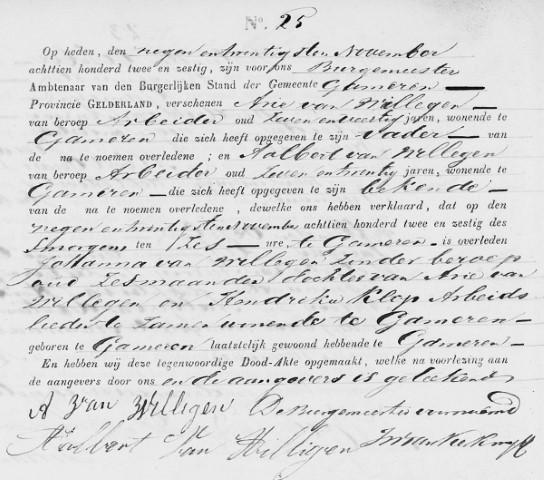 No. 25
Op heden, den negen en twintigsten November
achttien honderd twee en zestig, zijn voor ons Burgemeester
Ambtenaar van den Burgerlijken Stand der Gemeente Gameren
Provincie GELDERLAND, verschenen Arie van Willegen
van beroep Arbeider oud zeven en veertig jaren, wonende te
Gameren die zich heeft opgegeven te zijn vader van
de na te noemen overledene; en Aalbert van Willegen
van beroep Arbeider oud zeven en twintig jaren, wonende te
Gameren die zich heeft opgegeven te zijn bekende
van de na te noemen overledene, dewelke ons hebben verklaard, dat op den
negen en twintigsten November achttien honderd twee en zestig des
smorgens ten zes ure, te Gameren is overleden
Johanna van Willegen zonder beroep
oud zes maanden dochter van Arie van
Willegen en Hendrika Klop Arbeids
lieden te zamen wonende te Gameren
geboren te Gameren laatstelijk gewoond hebbende te Gameren
En hebben wij deze tegenwoordige Dood-Akte opgemaakt, welke na voorlezing aan
de aangevers door ons en de aangevers is geteekend
A van Willigen De Burgemeester voornoemd
Aalbert van Willigen